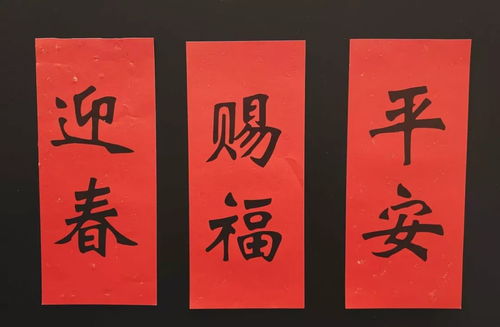 迎春
赐福
平安